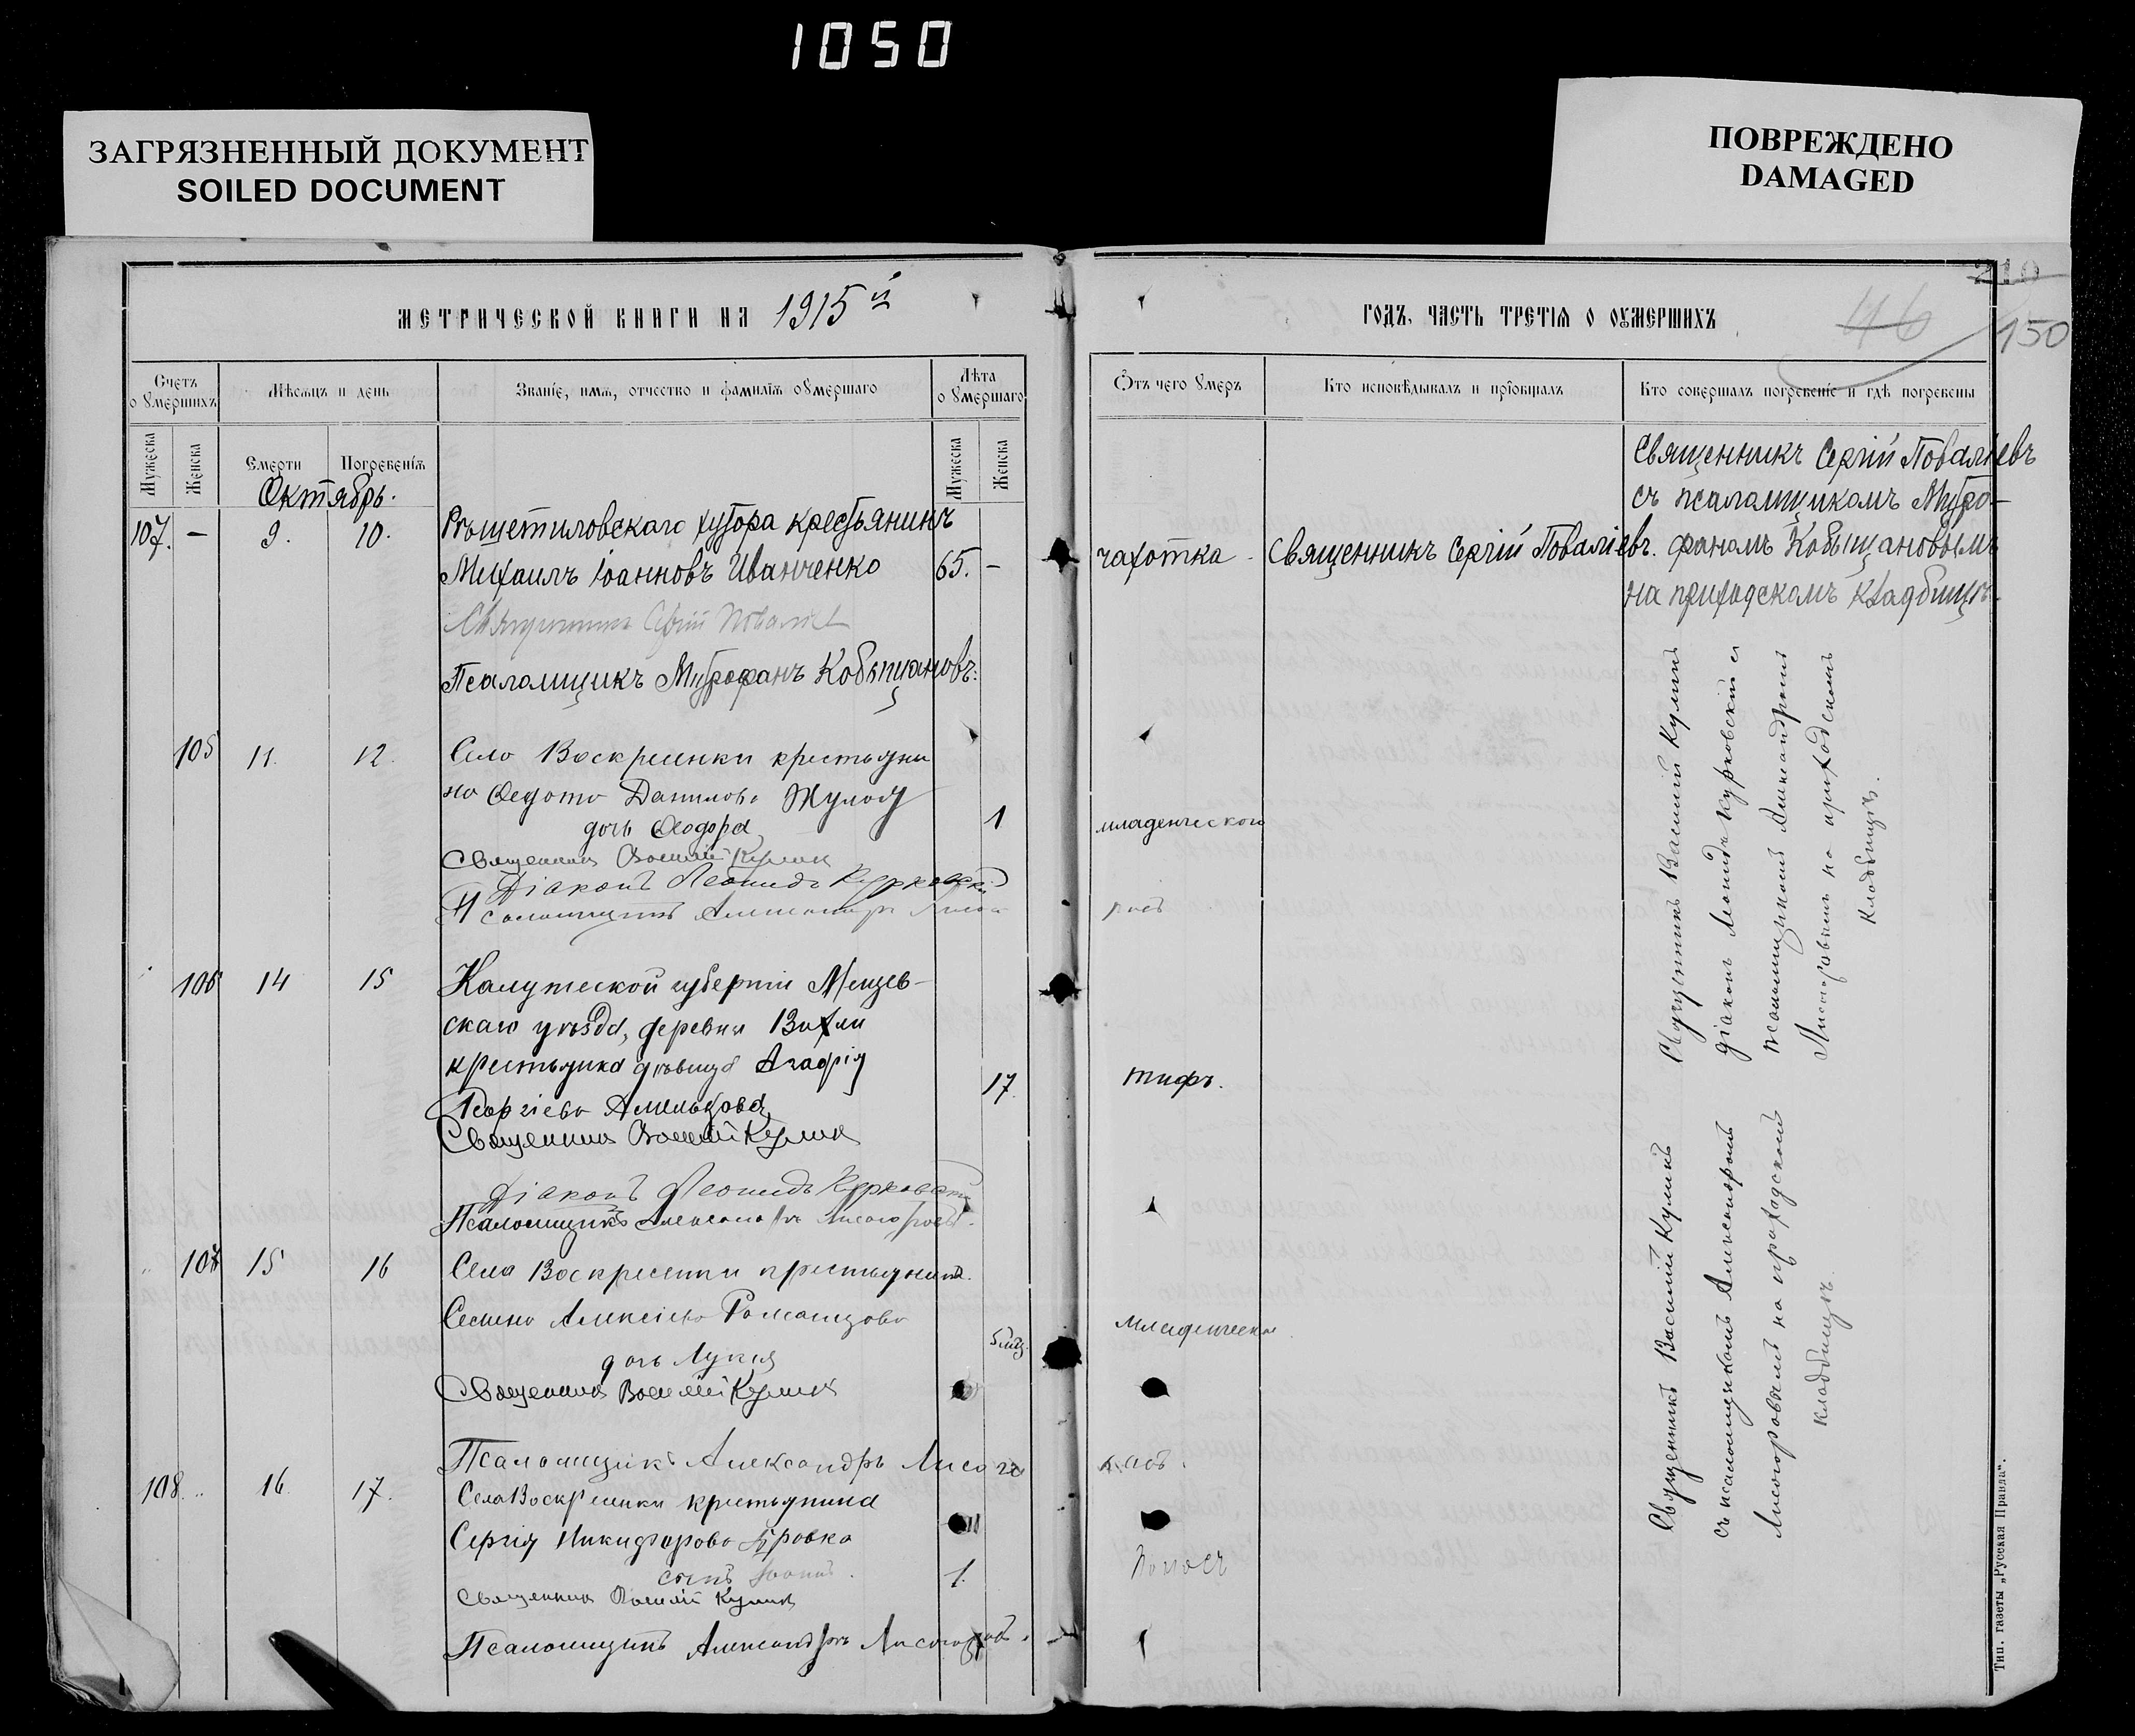 1050
ЗАГРЯЗНЕННЫЙ ДОКУМЕНТ
SOILED DOCUMENT
ПОВРЕЖДЕНО
DAMAGED
МЕТРИЧЕСКОЙ КНИГИ НА 1915 й
Счетъ о умершихъ
Мѣсяцъ и день
Званіе, имя, отчество и фамилія умершаго
Лѣта о умершаго
Мужеска
Женска
Смерти
Погребенія
Мужеска
Женска
Октябрь.
107. — 9. 10. Рѣшетиловскаго хутора крестьянинъ
Михаилъ Іоанновъ Иванченко 65. —
Священникъ Сергій Поваліевъ
Псаломщикъ Митрофанъ Кобыщановъ.
105 11. 12. Села Воскресенки крестьяни
на Федота Данилова Жулая
дочь Феодора 1
Священникъ Василій Куликъ
Діаконъ Леонидъ Курковскій
Псаломщикъ Александръ
106 14 15 Калужской губерніи Мещев-
скаго уѣзда, деревни
крестьянка дѣвица Агафія 17
Георгіева
Священникъ Василій Куликъ
Діаконъ Леонидъ Курковскій
Псаломщикъ Александръ Лисогоровъ.
107 15 16 Села Воскресенки крестьянина
Алексіева Романцова
дочь Лукія 5 мц.
Священникъ Василій Куликъ
Псаломщикъ Александръ Лисого
108. 16. 17. Села Воскресенки крестьянина
Сергія Никифорова Бровка
сынъ 1.
Священникъ Василій Куликъ
Псаломщикъ Александръ Лисогоровъ.
ГОДЪ, ЧАСТЬ ТРЕТІЯ О УМЕРШИХЪ
210
46
150
Отъ чего умеръ
Кто исповѣдывалъ и пріобщалъ
Кто совершалъ погребеніе и гдѣ погребены
чахотка Священникъ Сергій Поваліевъ.
Священникъ Сергій Поваліевъ
съ псаломщикомъ Митро-
фаномъ Кобыщановымъ
на приходскомъ кладбищѣ.
младенческого
ровъ
тифъ.
младенческая
ровъ.
поносъ
Священникъ Василій Куликъ
діаконъ Леонидъ Курковскій съ
псаломщикомъ Александромъ
Лисогоровымъ на приходскомъ
кладбищѣ.
Священникъ Василій Куликъ
съ псаломщикомъ Александромъ
Лисогоровымъ на приходской
кладбищѣ
Тип. газеты „Русская Правда“.